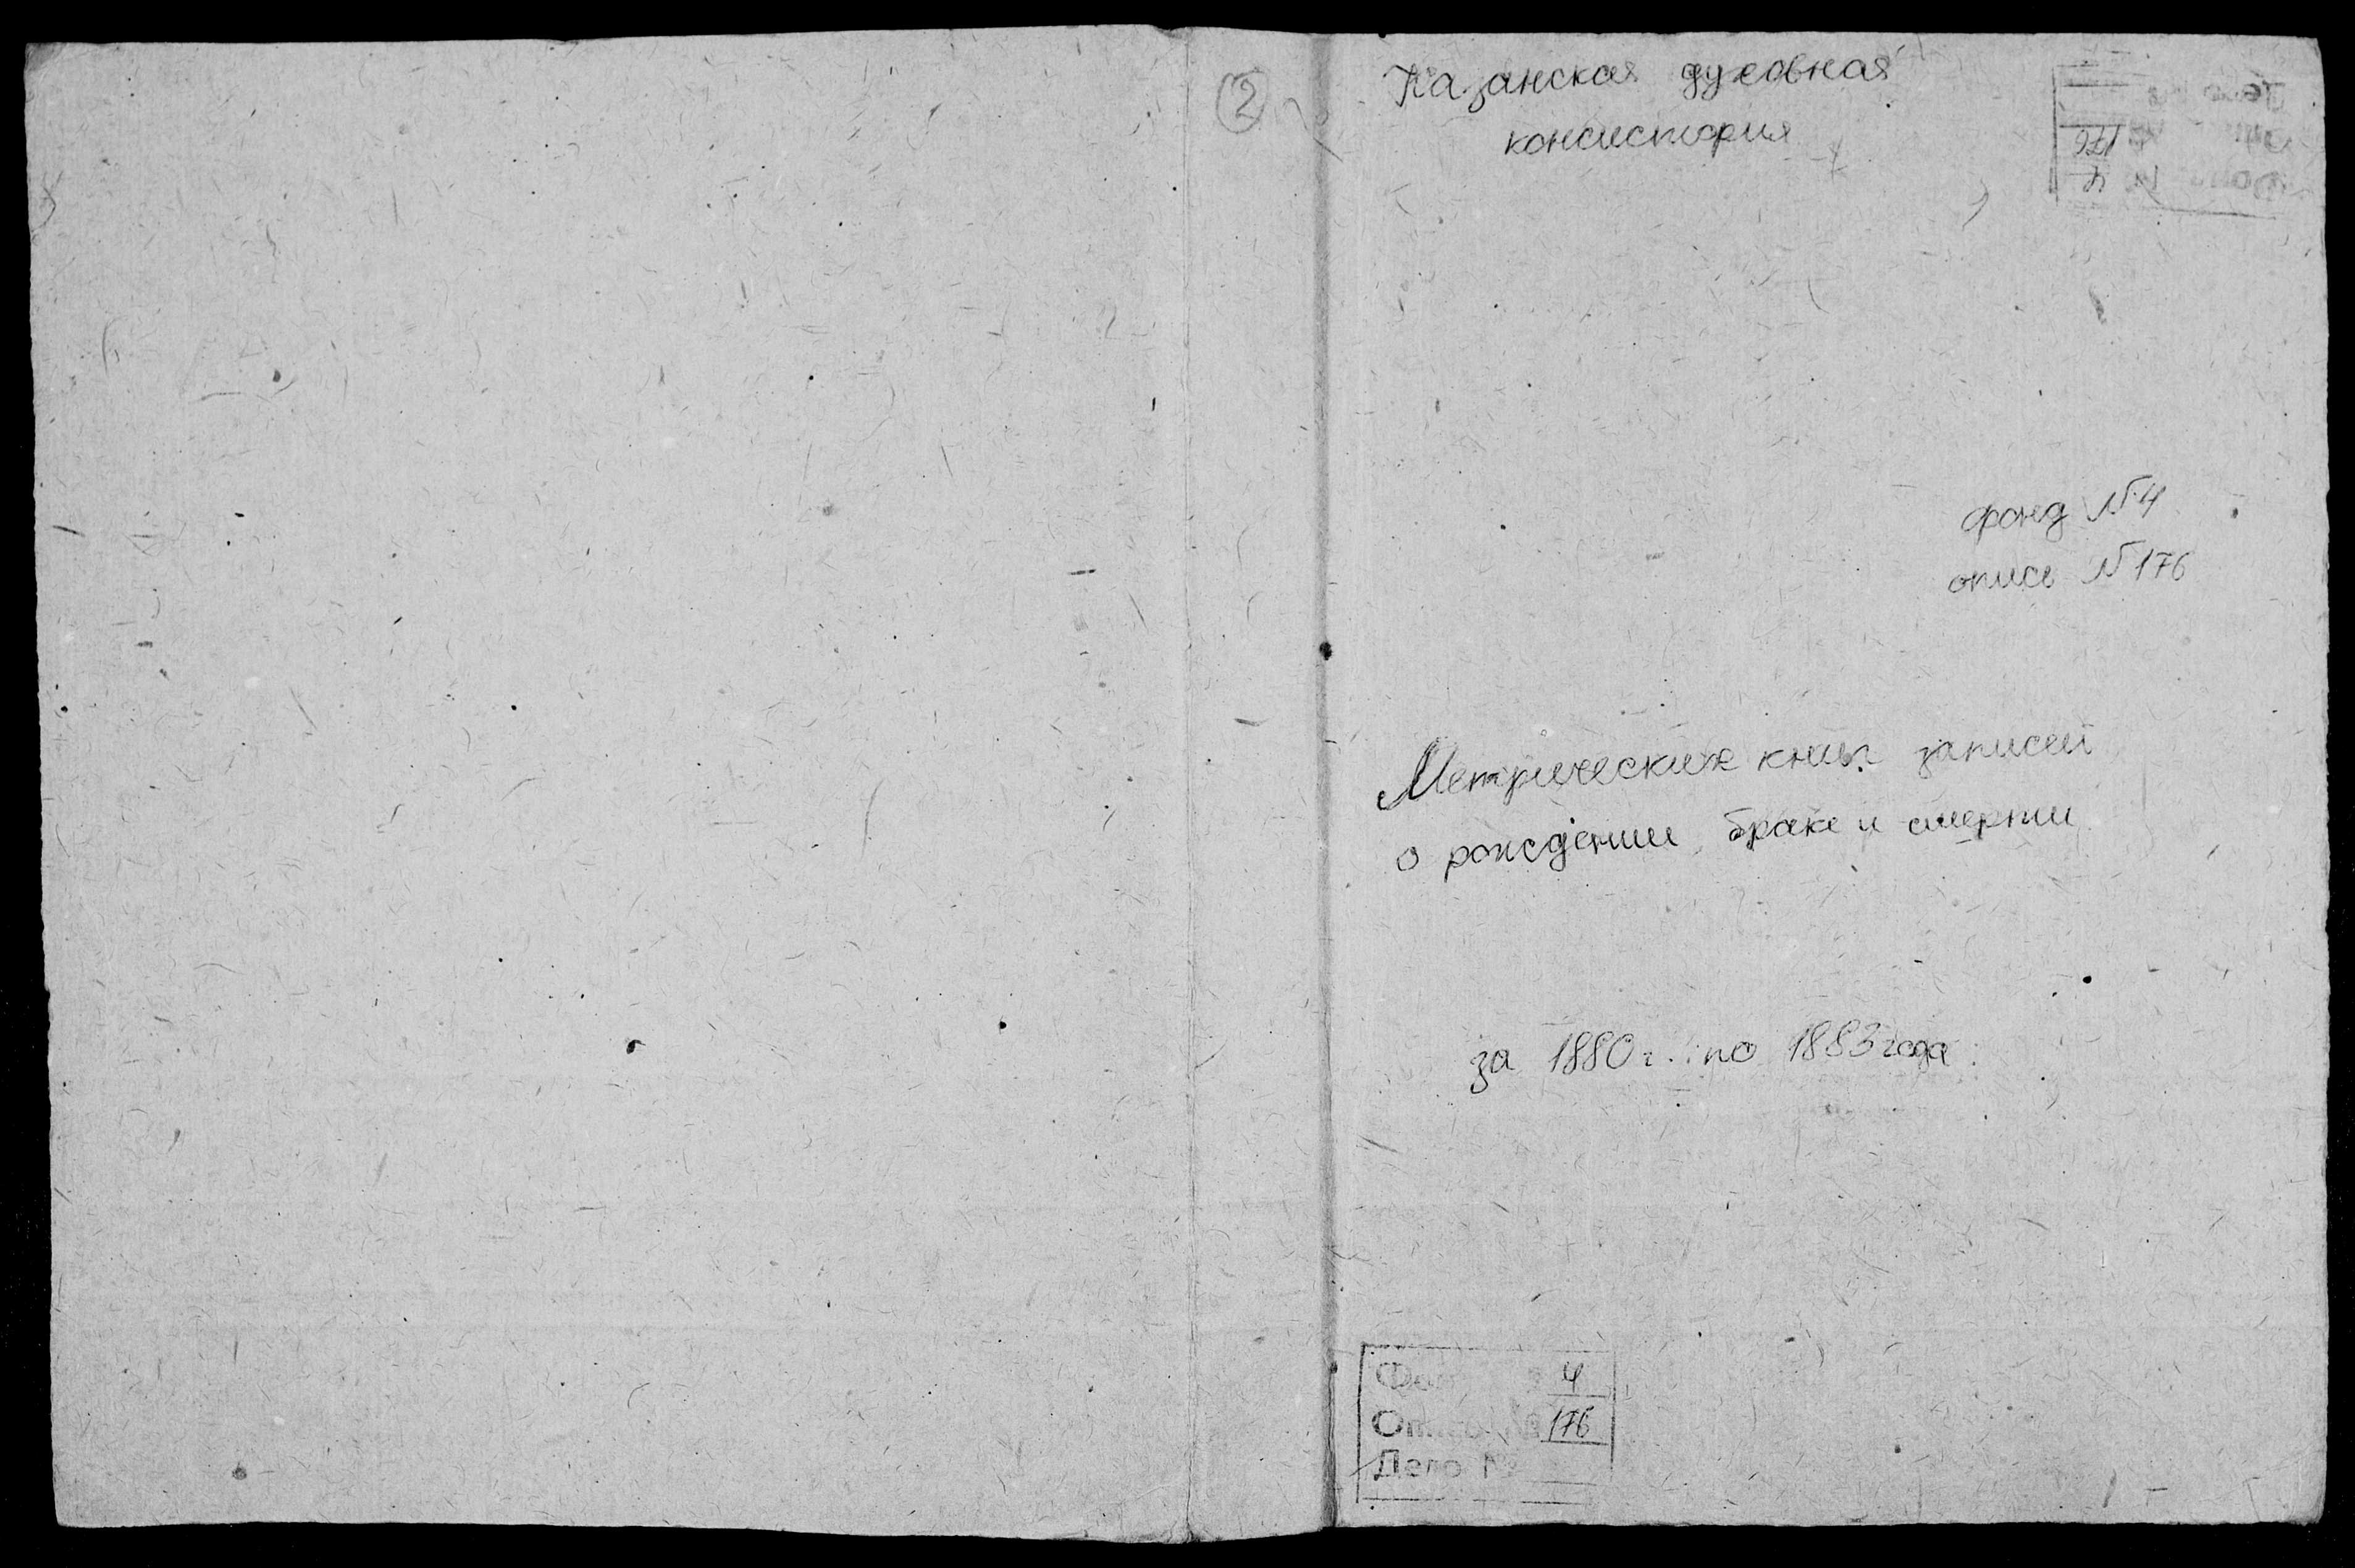 2
Казанская духовная
консистория
фонд №4
опись №176
Метрических книг записей
о рождении, браке и смерти
за 1880 г. по 1883 года
Фонд 4
Опись № 176
Дело №